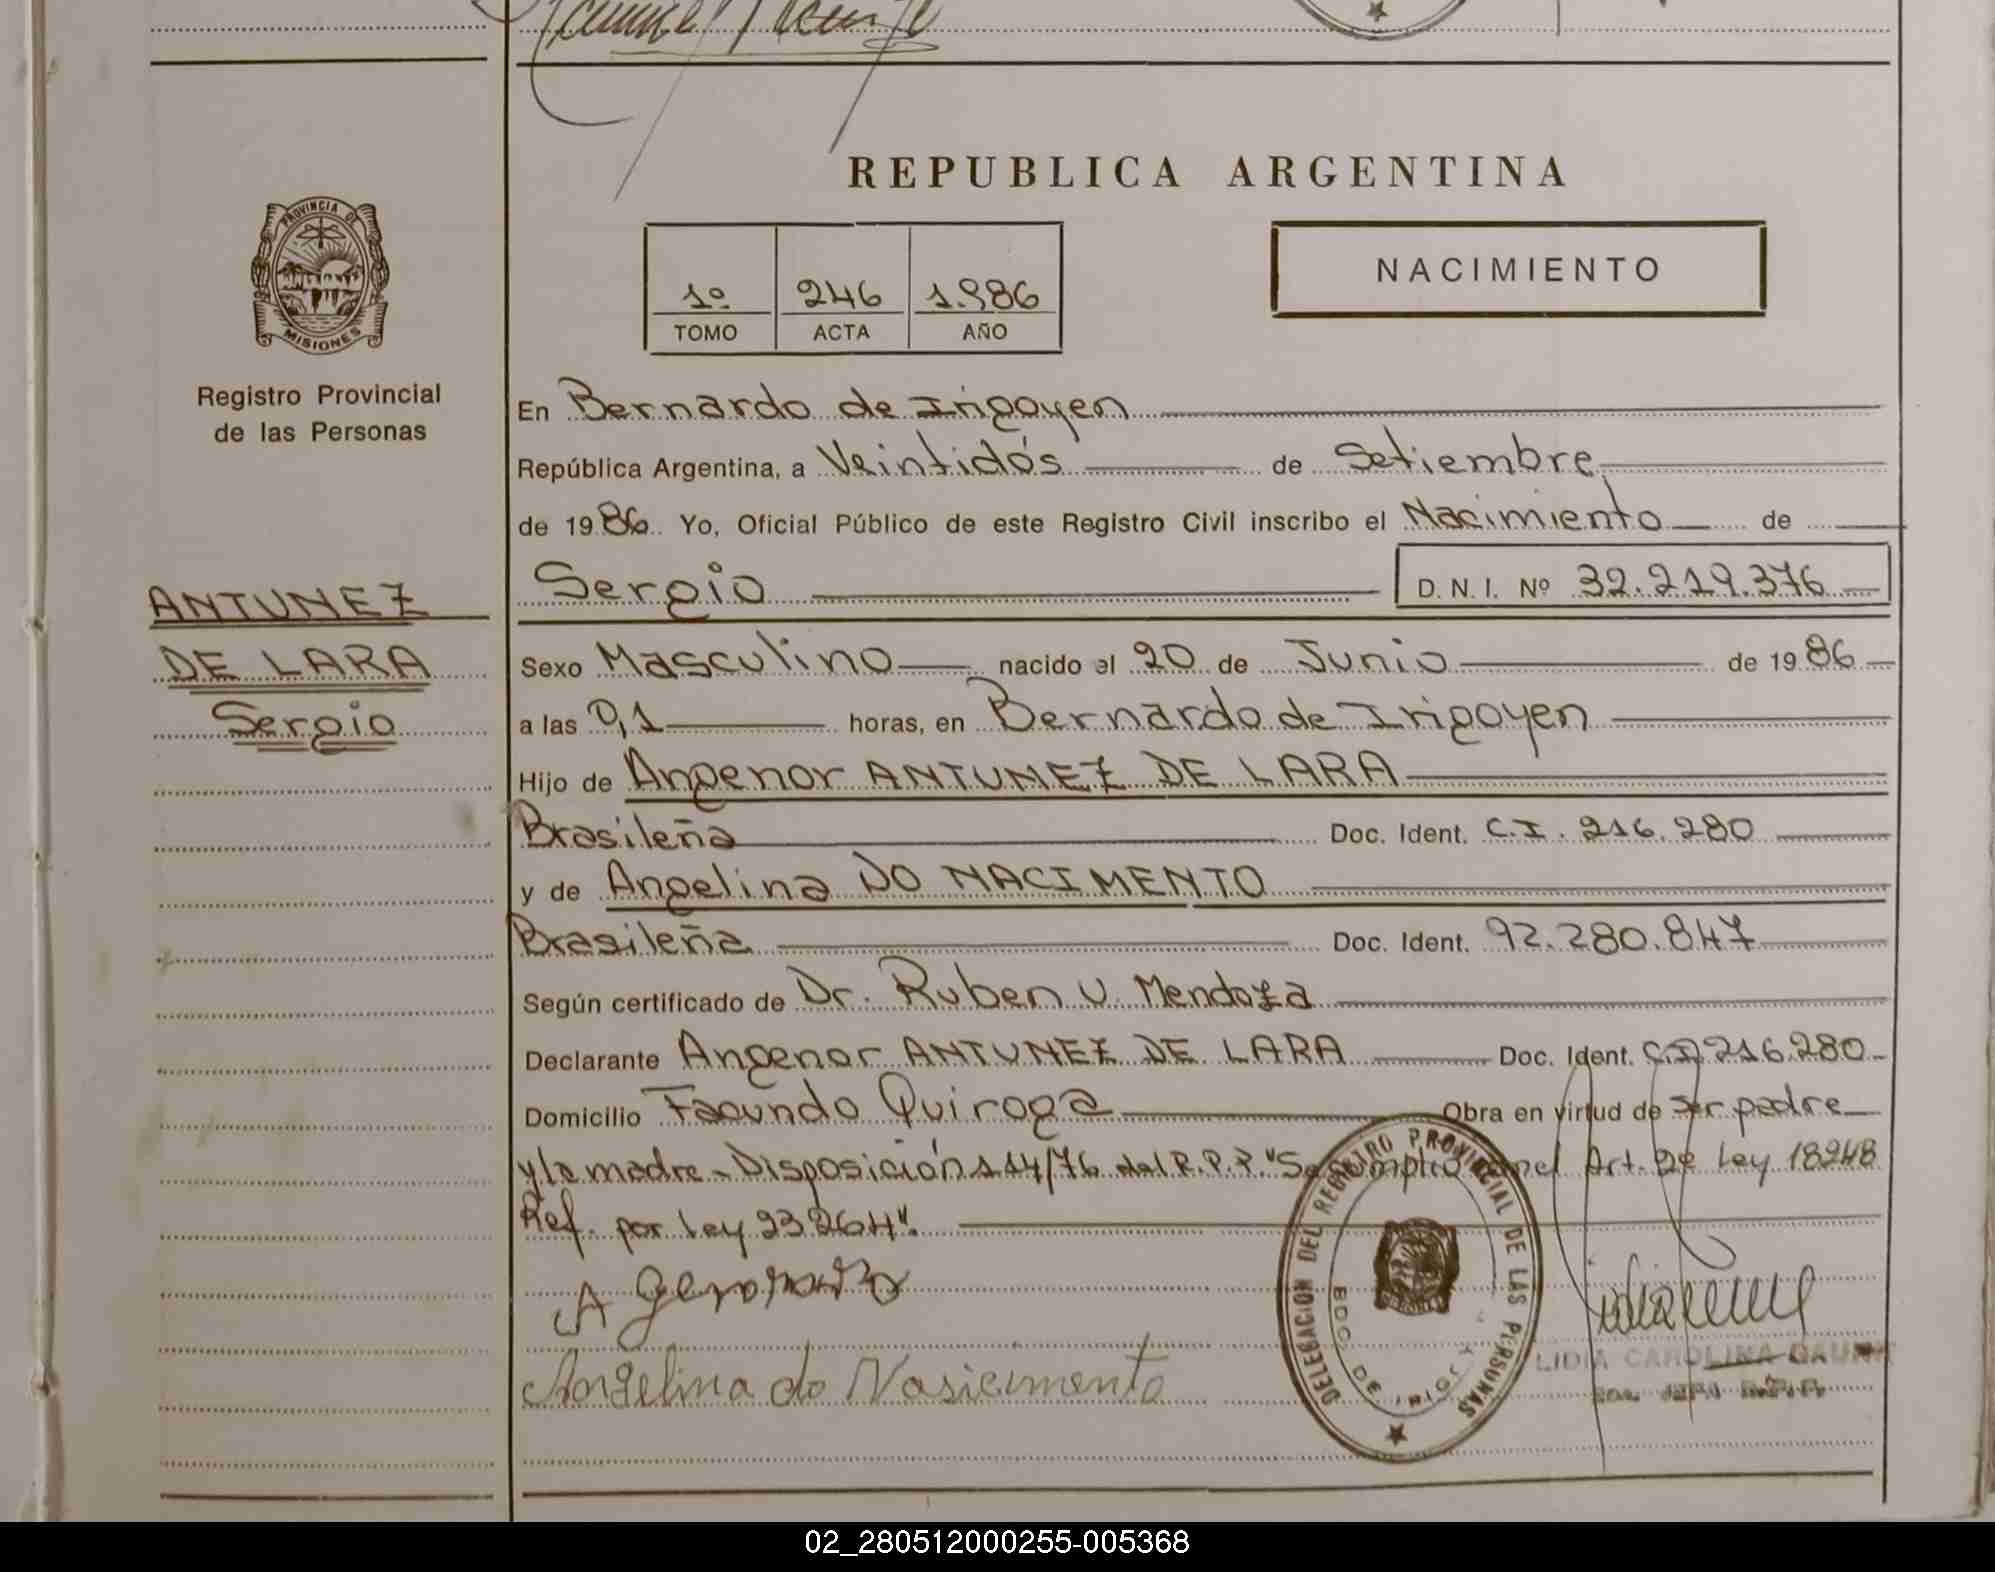 REPUBLICA ARGENTINA
PROVINCIA DE
MISIONES
Registro Provincial
de las Personas
1º 246 1.986
TOMO ACTA AÑO
NACIMIENTO
En Bernardo de Irigoyen
República Argentina, a Veintidós de Setiembre
de 1986 Yo, Oficial Público de este Registro Civil inscribo el Nacimiento de
ANTUNEZ
DE LARA
Sergio
Sergio D. N. I. Nº 32.219.376
Sexo Masculino nacido el 20 de Junio de 1986
a las 0,1 horas, en Bernardo de Irigoyen
Hijo de Angenor ANTUNEZ DE LARA
Brasileña Doc. Ident. C.I. 216.280
y de Angelina DO NACIMENTO
Brasileña Doc. Ident. 92.280.847
Según certificado de Dr. Ruben U. Mendoza
Declarante Angenor ANTUNEZ DE LARA Doc. Ident. C.I 216.280
Domicilio Facundo Quiroga Obra en virtud de ser padre
y la madre - Disposición 114/76 del R.P.P. "Se cumplió con el Art. 2º Ley 18248
Ref. por Ley 23264".
Angelina do Nasicimento
DELEGACION DEL REGISTRO PROVINCIAL DE LAS PERSONAS
BDO. DE IRIGOYEN
LIDIA CAROLINA
02_280512000255-005368